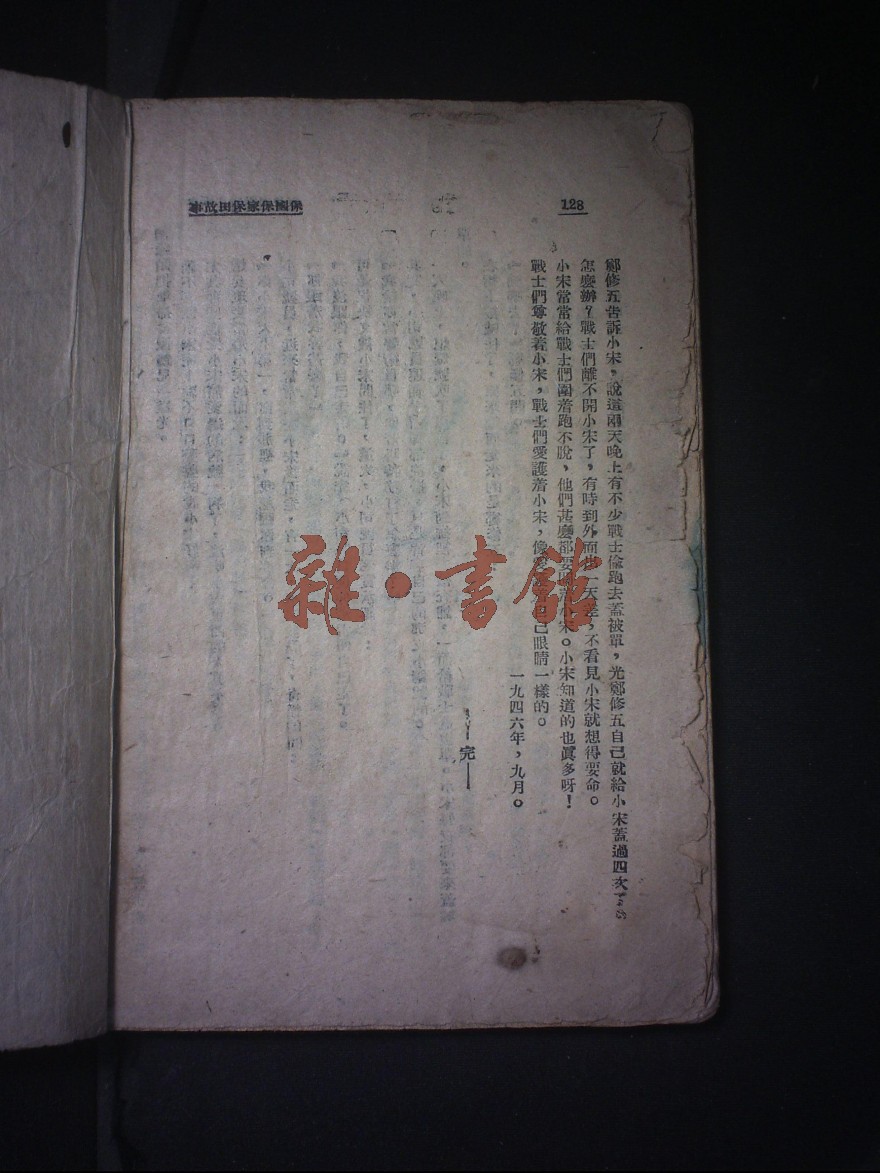 128
保國保家保田故事
鄭修五告訴小宋，說這兩天晚上有不少戰士偸跑去蓋被單，光鄭修五自己就給小宋蓋過四次了。
怎麼辦？戰士們離不開小宋了，有時到外面出一天差，不看見小宋就想得要命。
小宋當當給戰士們圍着跑不脫，他們甚麼都要問着小宋。小宋知道的也眞多呀！
戰士們尊敬着小宋，戰士們愛護着小宋，像愛護自己眼睛一樣的。
一九四六年，九月。
—完—
雜·書館